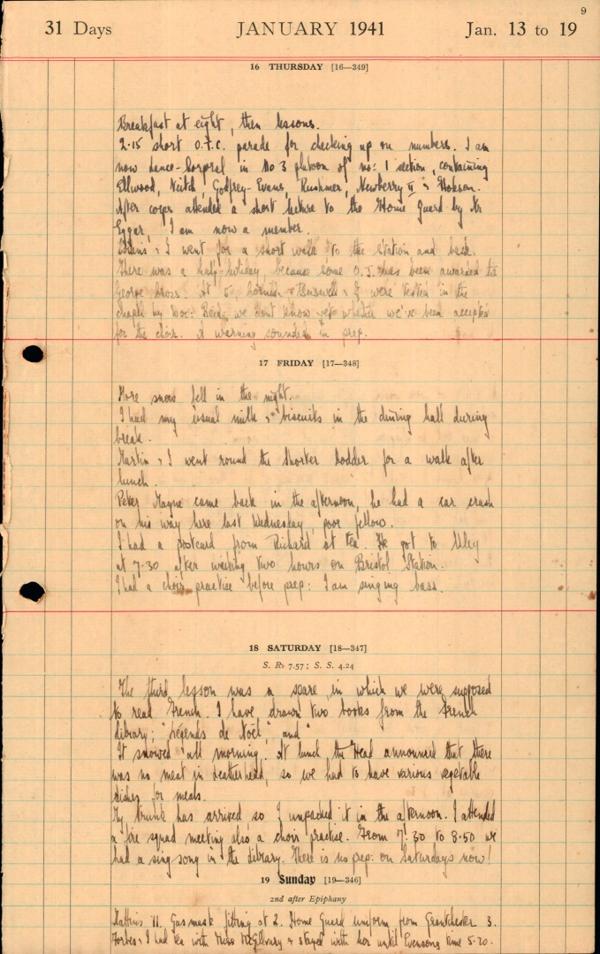 9
31 Days JANUARY 1941 Jan. 13 to 19
16 THURSDAY [16—349]
Breakfast at eight, then lessons.
2.15 short O.T.C. parade for checking up on numbers. I am
now Lance-Corporal in No 3 platoon of no: 1 section, containing
Ellwood, Keitch, Godfrey-Evans, Rushmer, Newberry II & Hobson.
After corps attended a short lecture to the Home Guard by Mr
Eggar, I am now a member.
& I went for a short walk to the Station and back.
There was a half-holiday because some O.J. has been awarded the
George Cross. At 5 & I were tested in the
chapel by we don't know yet whether we've been accepted
for the choir. A warning sounded in prep.
17 FRIDAY [17—348]
More snow fell in the night.
I had my usual milk & biscuits in the dining hall during
break.
Martin & I went round the shorter Dodder for a walk after
lunch.
Peter Mayne came back in the afternoon, he had a car crash
on his way here last Wednesday, poor fellow.
I had a postcard from Richard at tea. He got to
at 7.30 after waiting two hours on Bristol Station.
I had a choir practise before prep: I am singing bass.
18 SATURDAY [18—347]
S. R. 7.57; S. S. 4.24
The third lesson was a scare in which we were supposed
to read French. I have drawn two books from the French
library; "Légendes de Noël", and "
It snowed all morning. At lunch the Head announced that there
was no meat in Leatherhead, so we had to have various vegetable
dishes for meals.
My trunk has arrived so I unpacked it in the afternoon. I attended
a fire squad meeting also a choir practise. From 7.30 to 8.50 we
had a sing song in the library. There is no prep. on Saturdays now!
19 Sunday [19—346]
2nd after Epiphany
Mattins 11. Gas mask fitting at 2. Home Guard uniform from Grantchester 3.
Forbes & I had tea with Miss McGilvary & stayed with her until Evensong time 5.20.